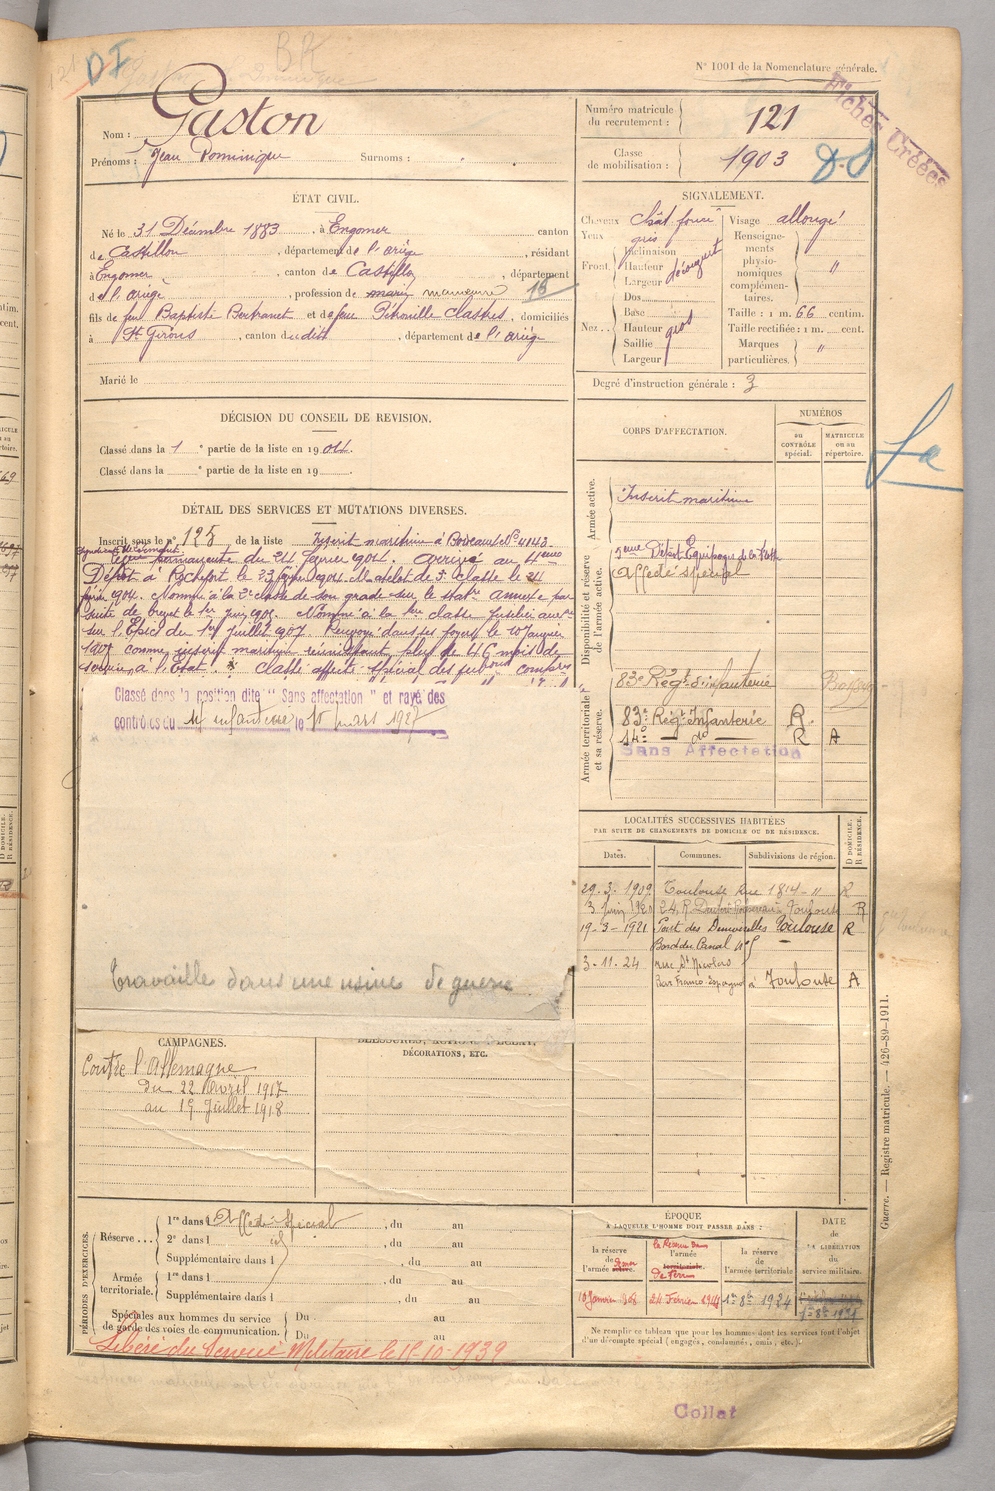 D I
BR
N° 1001 de la Nomenclature générale.
Fiches Créées
Nom : Gaston
Prénoms : Jean Dominique Surnoms :
Numéro matricule du recrutement : 121
Classe de mobilisation : 1903
ÉTAT CIVIL.
Né le 31 Décembre 1883, à Engomer canton
de Castillon, département de l'ariège, résidant
à Engomer, canton de Castillon, département
de l'ariège, profession de marin manœuvre 16
fils de feu Baptiste Bertranet et de feue Pétronille Clastres, domiciliés
à St Girons, canton dudit, département de l'ariège
Marié le
SIGNALEMENT.
Cheveux chât foncé Visage allongé
Yeux gris
Front Inclinaison Hauteur Largeur découvert
Nez Dos Base Hauteur Saillie Largeur gros
Renseignements physionomiques complémentaires. "
Taille : 1 m. 66 centim.
Taille rectifiée : 1 m. cent.
Marques particulières. "
Degré d'instruction générale : 3
DÉCISION DU CONSEIL DE REVISION.
Classé dans la 1e partie de la liste en 1904.
Classé dans la e partie de la liste en 19
CORPS D'AFFECTATION.
NUMÉROS
au CONTRÔLE spécial.
MATRICULE ou au répertoire.
Armée active.
Inscrit maritime
Disponibilité et réserve de l'armée active.
Dépôt Equipages de la flotte
Affecté spécial
Armée territoriale et sa réserve.
83e Régt d'infanterie
83e Régt Infanterie R.
14e do R A
Sans Affectation
DÉTAIL DES SERVICES ET MUTATIONS DIVERSES.
Inscrit sous le n° 125 de la liste Inscrit maritime à Bordeaux N° 4143
permanente du 24 février 1904. Arrivé au 4eme
Dépôt à Rochefort le 23 1904. Matelot de 3e classe le 24
1904. Nommé à la 2e classe de son grade sur le annexe par
suite de brevet le 1er juin 1905. Nommé à la 1re classe fusilier
sur l'Epée du 1er Juillet 1907 Renvoyé dans ses foyers le 10 Janvier
1908 comme inscrit maritime réunissant plus de 46 mois de
service à l'Etat. Classé affecté spécial des
Classé dans la position dite " Sans affectation " et rayé des
contrôles du 14 infanterie le 15 mars 1927
Travaille dans une usine de guerre
LOCALITÉS SUCCESSIVES HABITÉES
PAR SUITE DE CHANGEMENTS DE DOMICILE OU DE RÉSIDENCE.
Dates. Communes. Subdivisions de région. D DOMICILE. R RÉSIDENCE.
29.3.1909 Toulouse Rue 1814 - " R
3 Juin 1920 24, R. Toulouse R
19-3-1921 Port des Demoiselles Toulouse R
Bord du Canal
3-11-24 rue St Nicolas
Bar Franco-Espagnol à Toulouse A
CAMPAGNES.
Contre l'Allemagne
du 22 Avril 1917
au 19 Juillet 1918
BLESSURES, ACTIONS D'ÉCLAT, DÉCORATIONS, ETC.
Guerre. — Registre matricule. — 426-89-1911.
PÉRIODES D'EXERCICES.
Réserve
1re dans l Affecté Spécial, du au
2e dans l id, du au
Supplémentaire dans l, du au
Armée territoriale.
1re dans l, du au
Supplémentaire dans l, du au
Spéciales aux hommes du service de garde des voies de communication.
Du au
Du au
Libéré du Service Militaire le 15-10-1939
ÉPOQUE
À LAQUELLE L'HOMME DOIT PASSER DANS :
la réserve de l'armée active.
la Réserve dans l'armée territoriale. de Terre
la réserve de l'armée territoriale
DATE de LA LIBÉRATION du service militaire.
10 Janvier 1908
24 Février 1914
1er 8bre 1924
Ne remplir ce tableau que pour les hommes dont les services font l'objet
d'un décompte spécial (engagés, condamnés, omis, etc.).
Collat